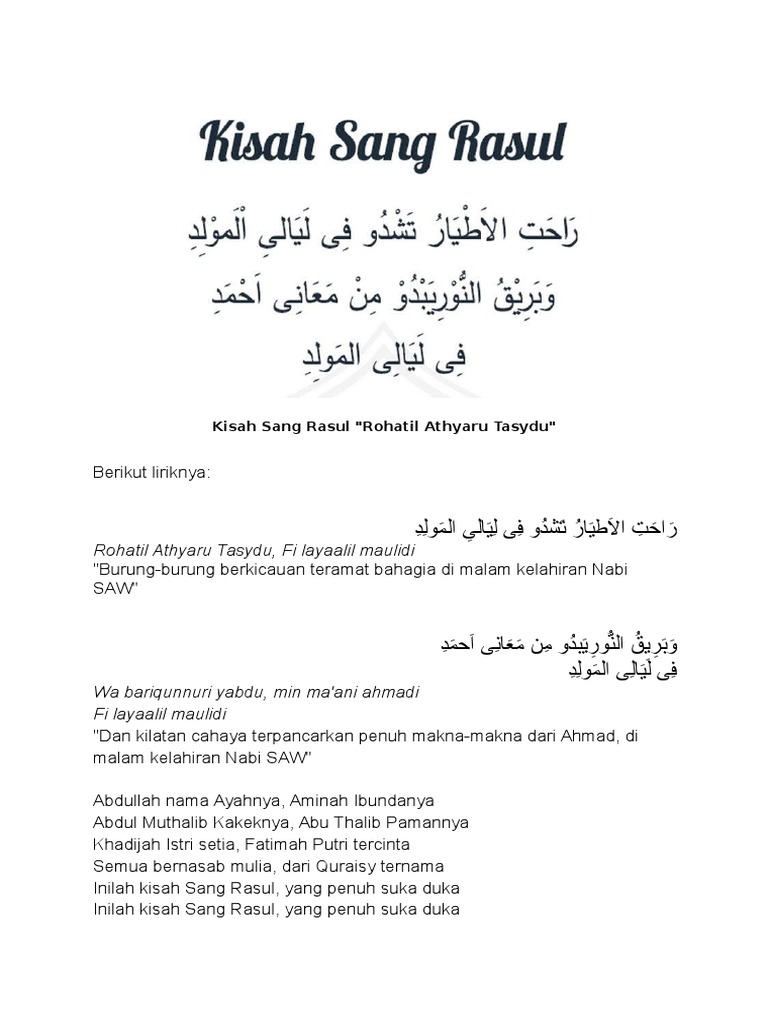 Kisah Sang Rasul
رَاحَتِ الاَطْيَارُ تَشْدُو فِى لَيَالىِ اْلَموْلِدِ
وَبَرِيْقُ النُّوْرِيَبْدُوْ مِنْ مَعَانِى اَحْمَدِ
فِى لَيَالِى المَولِدِ
Kisah Sang Rasul "Rohatil Athyaru Tasydu"
Berikut liriknya:
رَاحَتِ الاَطيَارُ تَشدُو فِى لَيَالىِ المَولِدِ
Rohatil Athyaru Tasydu, Fi layaalil maulidi
"Burung-burung berkicauan teramat bahagia di malam kelahiran Nabi
SAW"
وَبَرِيقُ النُّورِيَبدُو مِن مَعَانِى اَحمَدِ
فِى لَيَالِى المَولِدِ
Wa bariqunnuri yabdu, min ma'ani ahmadi
Fi layaalil maulidi
"Dan kilatan cahaya terpancarkan penuh makna-makna dari Ahmad, di
malam kelahiran Nabi SAW"
Abdullah nama Ayahnya, Aminah Ibundanya
Abdul Muthalib Kakeknya, Abu Thalib Pamannya
Khadijah Istri setia, Fatimah Putri tercinta
Semua bernasab mulia, dari Quraisy ternama
Inilah kisah Sang Rasul, yang penuh suka duka
Inilah kisah Sang Rasul, yang penuh suka duka